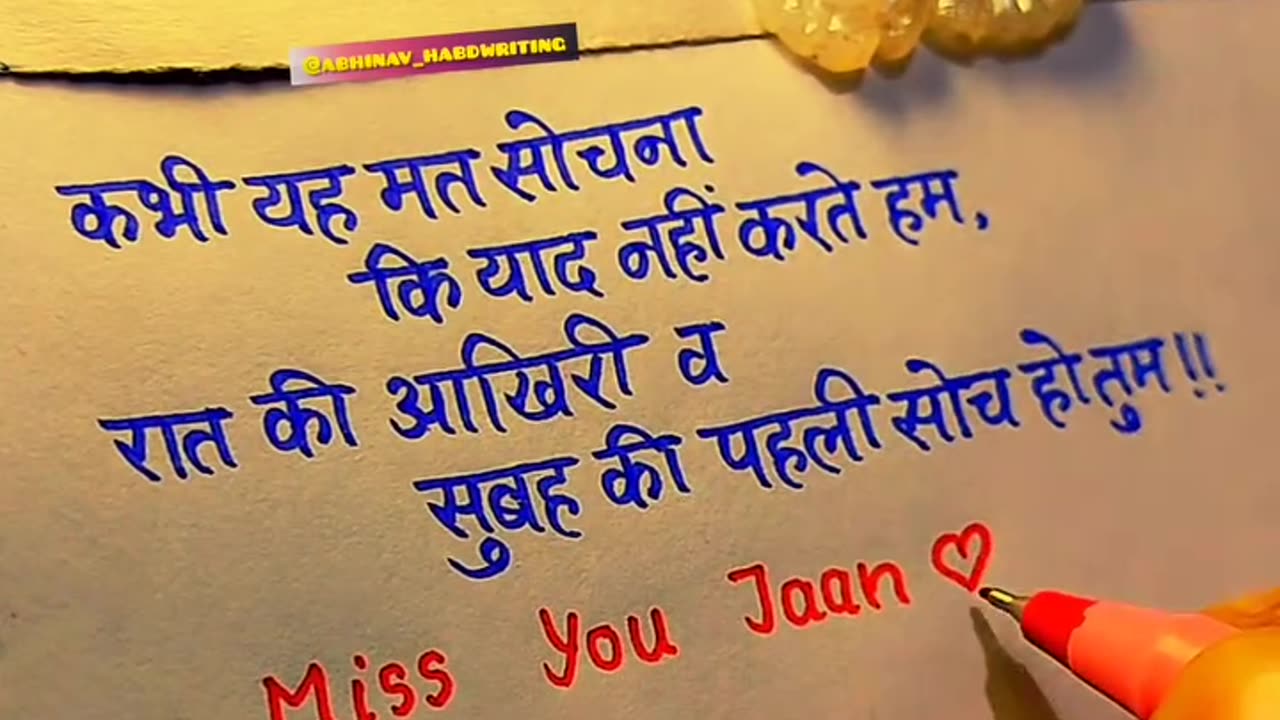 @ABHINAV_HABDWRITING
कभी यह मत सोचना
कि याद नहीं करते हम,
रात की आखिरी व
सुबह की पहली सोच हो तुम!!
Miss You Jaan